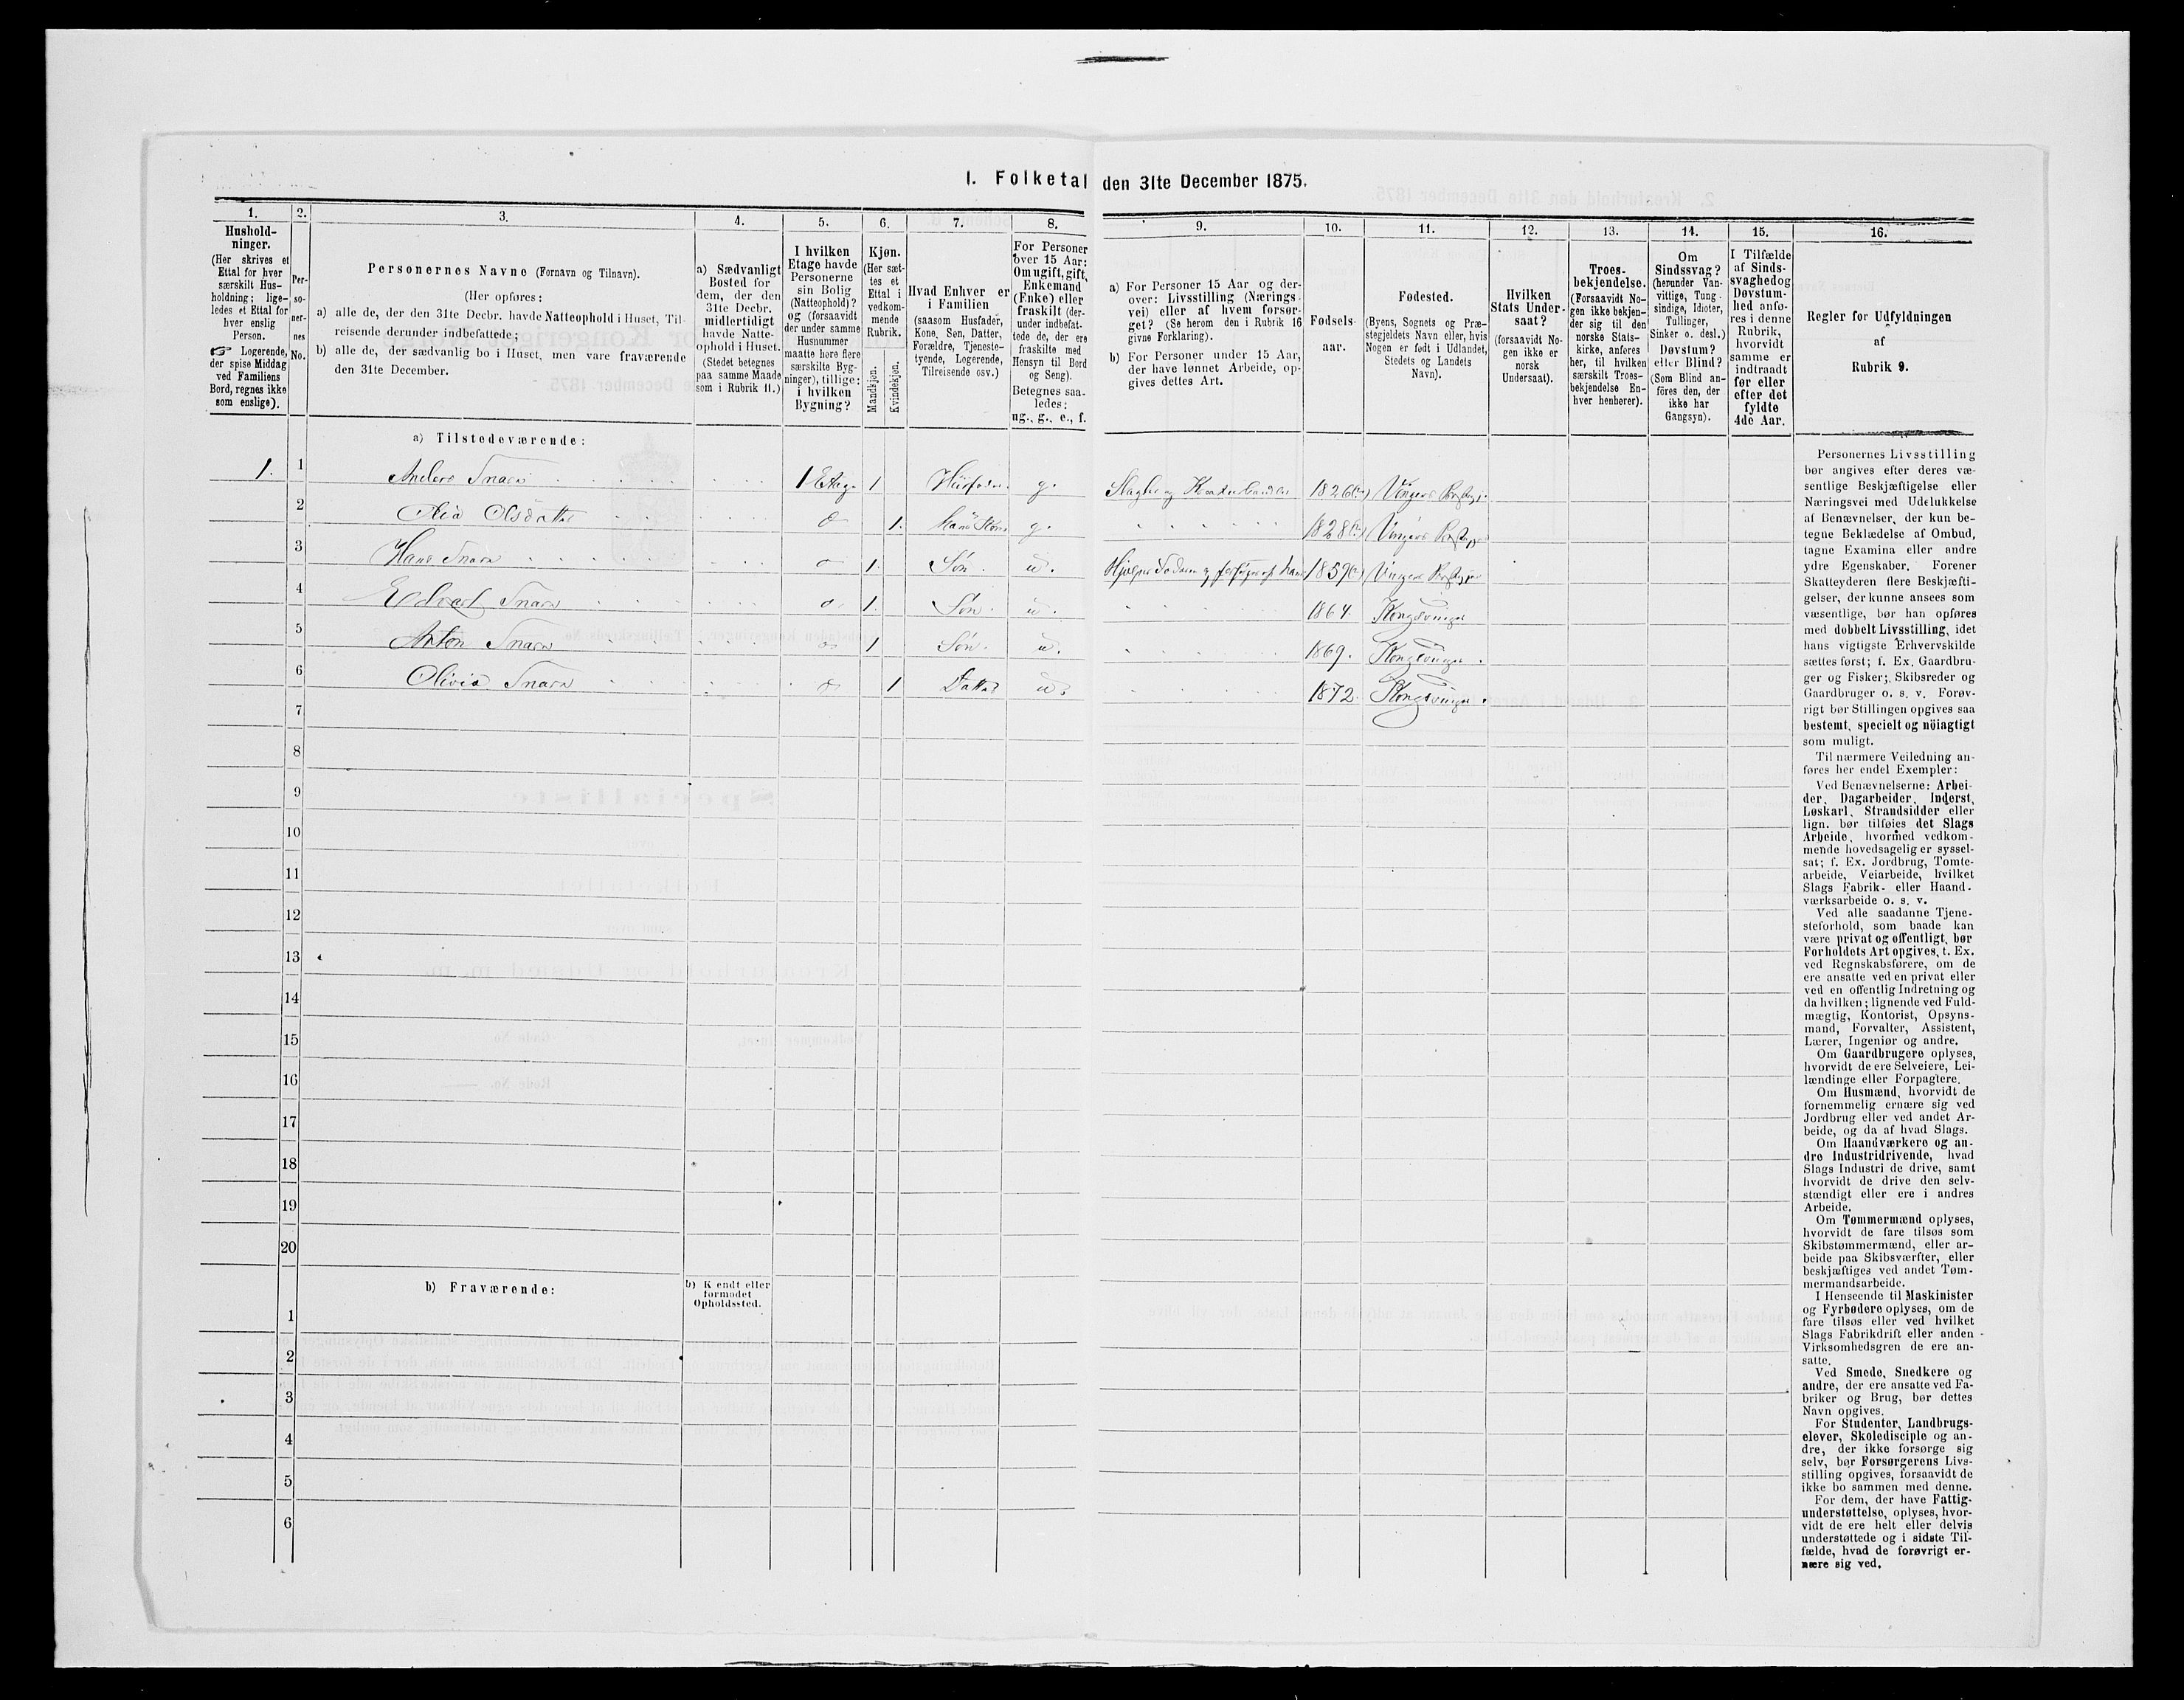 I. Folketal den 31te December 1875.
1.
Hushold-
ninger.
(Her skrives et
Ettal for hver
særskilt Hus-
holdning; lige-
ledes et Ettal for
hver enslig
Person.
☞ Logerende,
der spise Middag
ved Familiens
Bord, regnes ikke
som enslige).
2.
Per-
so-
ner-
nes
No.
3.
Personernes Navne (Fornavn og Tilnavn).
(Her opføres:
a) alle de, der den 31te Decbr. havde Natteophold i Huset, Til-
reisende derunder indbefattede;
b) alle de, der sædvanlig bo i Huset, men vare fraværende
den 31te December.
4.
a) Sædvanligt
Bosted for
dem, der den
31te Decbr.
midlertidigt
havde Natte-
ophold i Huset.
(Stedet betegnes
paa samme Maade
som i Rubrik 11.)
5.
I hvilken
Etage havde
Personerne
sin Bolig
(Natteophold)?
og (forsaavidt
der under samme
Husnummer
maatte høre flere
særskilte Byg-
ninger), tillige:
i hvilken
Bygning?
6.
Kjøn.
(Her sæt-
tes et
Ettal i
vedkom-
mende
Rubrik.
Mandkjøn.
Kvindekjøn.
7.
Hvad Enhver er
i Familien
(saasom Husfader,
Kone, Søn, Datter,
Forældre, Tjeneste-
tyende, Logerende,
Tilreisende osv.)
8.
For Personer
over 15 Aar:
Om ugift, gift,
Enkemand
(Enke) eller
fraskilt (der-
under indbefat-
tede de, der ere
fraskilte med
Hensyn til Bord
og Seng).
Betegnes saa-
ledes:
ug., g., e., f.
9.
a) For Personer 15 Aar og der-
over: Livsstilling (Nærings-
vei) eller af hvem forsør-
get? (Se herom den i Rubrik 16
givne Forklaring).
b) For Personer under 15 Aar,
der have lønnet Arbeide, op-
gives dettes Art.
10.
Fødsels-
aar.
11.
Fødested.
(Byens, Sognets og Præ-
stegjeldets Navn eller, hvis
Nogen er født i Udlandet,
Stedets og Landets
Navn).
12.
Hvilken
Stats Under-
saat?
(forsaavidt No-
gen ikke er
norsk
Undersaat).
13.
Troes-
bekjendelse.
(Forsaavidt No-
gen ikke bekjen-
der sig til den
norske Stats-
kirke, anføres
her, til hvilken
særskilt Troes-
bekjendelse En-
hver henhører).
14.
Om
Sindssvag?
(herunder Van-
vittige, Tung-
sindige, Idioter,
Tullinger,
Sinker o. desl.)
Døvstum?
eller Blind?
(Som Blind an-
føres den, der
ikke har
Gangsyn).
15.
I Tilfælde
af Sinds-
svaghed og
Døvstum-
hed anfø-
res i denne
Rubrik,
hvorvidt
samme er
indtraadt
før eller
efter det
fyldte
4de Aar.
16.
Regler for Udfyldningen
af
Rubrik 9.
a) Tilstedeværende:
1. 1 Anders Snare 1 Etage 1 Husfader g. 1826 Vingers
2 Olsdatter 1. Kone g. 1828 Vingers
3 Hans Snare 1. Søn u. 1859 Vingers
4 Edvart Snare 1. Søn. u. 1864 Kongsvinger
5 Anton Snare 1 Søn. u. 1869. Kongsvinger
6 Olivia Snare 1 Datter u. 1872. Kongsvinger
7
8
9
10
11
12
13
14
15
16
17
18
19
20
b) Fraværende:
b) Kjendt eller
formodet
Opholdssted.
1
2
3
4
5
6
Personernes Livsstilling
bør angives efter deres væ-
sentlige Beskjæftigelse eller
Næringsvei med Udelukkelse
af Benævnelser, der kun be-
tegne Beklædelse af Ombud,
tagne Examina eller andre
ydre Egenskaber. Forener
Skatteyderen flere Beskjæfti-
gelser, der kunne ansees som
væsentlige, bør han opføres
med dobbelt Livsstilling, idet
hans vigtigste Erhvervskilde
sættes først; f. Ex. Gaardbru-
ger og Fisker; Skibsreder og
Gaardbruger o. s. v. Forøv-
rigt bør Stillingen opgives saa
bestemt, specielt og nöiagtigt
som muligt.
Til nærmere Veiledning an-
føres her endel Exempler:
Ved Benævnelserne: Arbei-
der, Dagarbeider, Inderst,
Løskarl, Strandsidder eller
lign. bør tilføies det Slags
Arbeide, hvormed vedkom-
mende hovedsagelig er syssel-
sat; f. Ex. Jordbrug, Tomte-
arbeide, Veiarbeide, hvilket
Slags Fabrik- eller Haand-
værksarbeide o. s. v.
Ved alle saadanne Tjene-
steforhold, som baade kan
være privat og offentligt, bør
Forholdets Art opgives, t. Ex.
ved Regnskabsførere, om de
ere ansatte ved en privat eller
ved en offentlig Indretning og
da hvilken; lignende ved Fuld-
mægtig, Kontorist, Opsyns-
mand, Forvalter, Assistent,
Lærer, Ingeniør og andre.
Om Gaardbrugere oplyses,
hvorvidt de ere Selveiere, Lei-
lændinge eller Forpagtere.
Om Husmænd, hvorvidt de
fornemmelig ernære sig ved
Jordbrug eller ved andet Ar-
beide, og da af hvad Slags.
Om Haandværkere og an-
dre Industridrivende, hvad
Slags Industri de drive, samt
hvorvidt de drive den selv-
stændigt eller ere i andres
Arbeide.
Om Tømmermænd oplyses,
hvorvidt de fare tilsøs som
Skibstømmermænd, eller ar-
beide paa Skibsværfter, eller
beskjæftiges ved andet Tøm-
mermandsarbeide.
I Henseende til Maskinister
og Fyrbødere oplyses, om de
fare tilsøs eller ved hvilket
Slags Fabrikdrift eller anden
Virksomhedsgren de ere an-
satte.
Ved Smede, Snedkere og
andre, der ere ansatte ved Fa-
briker og Brug, bør dettes
Navn opgives.
For Studenter, Landbrugs-
elever, Skoledisciple og an-
dre, der ikke forsørge sig
selv, bør Forsørgerens Livs-
stilling opgives, forsaavidt de
ikke bo sammen med denne.
For dem, der have Fattig-
understøttelse, oplyses, hvor-
vidt de ere helt eller delvis
understøttede og i sidste Til-
fælde, hvad de forøvrigt er-
nære sig ved.